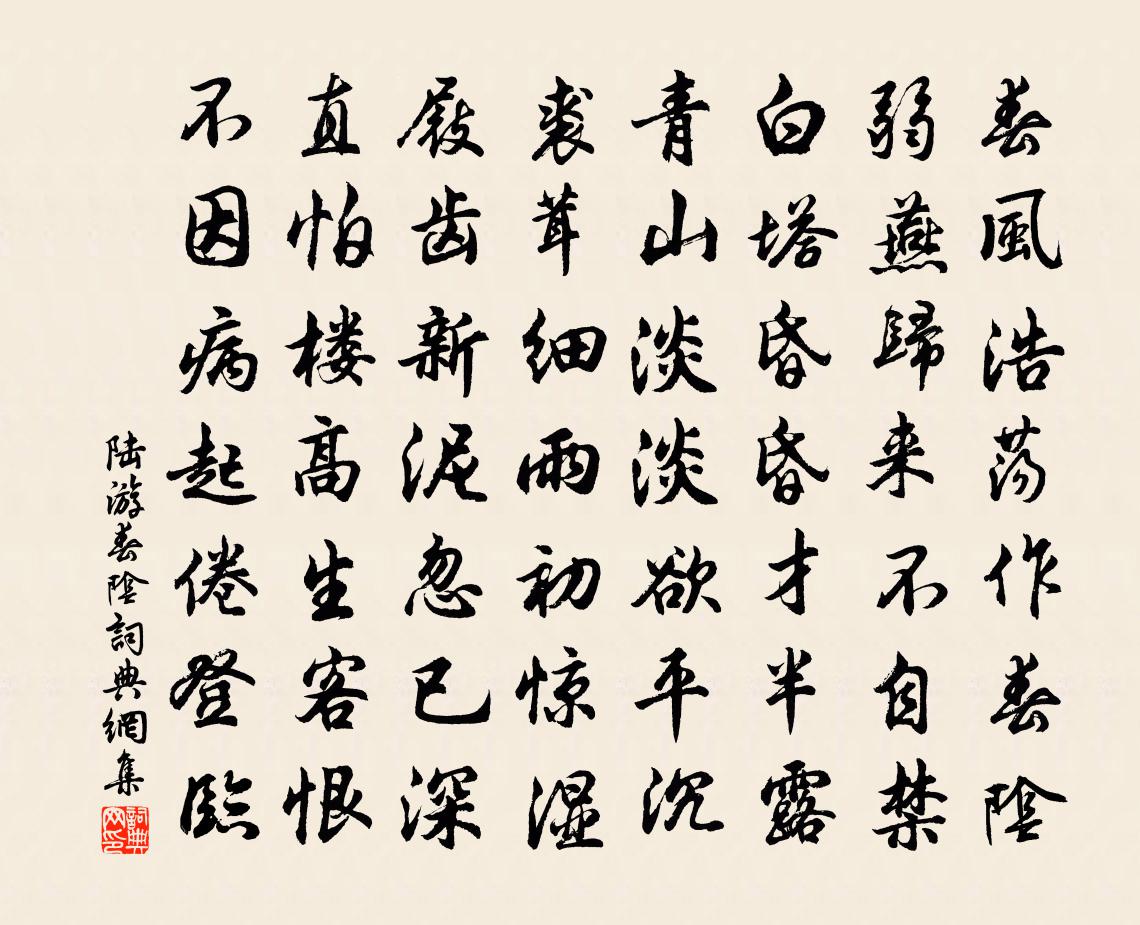 春風浩蕩作春陰
弱燕歸来不自禁
白塔昏昏才半露
青山淡淡欲平沉
裘茸细雨初惊湿
屐齿新泥忽已深
直怕楼高生客恨
不因病起倦登臨
陆游春陰詞典網集
詞典网印